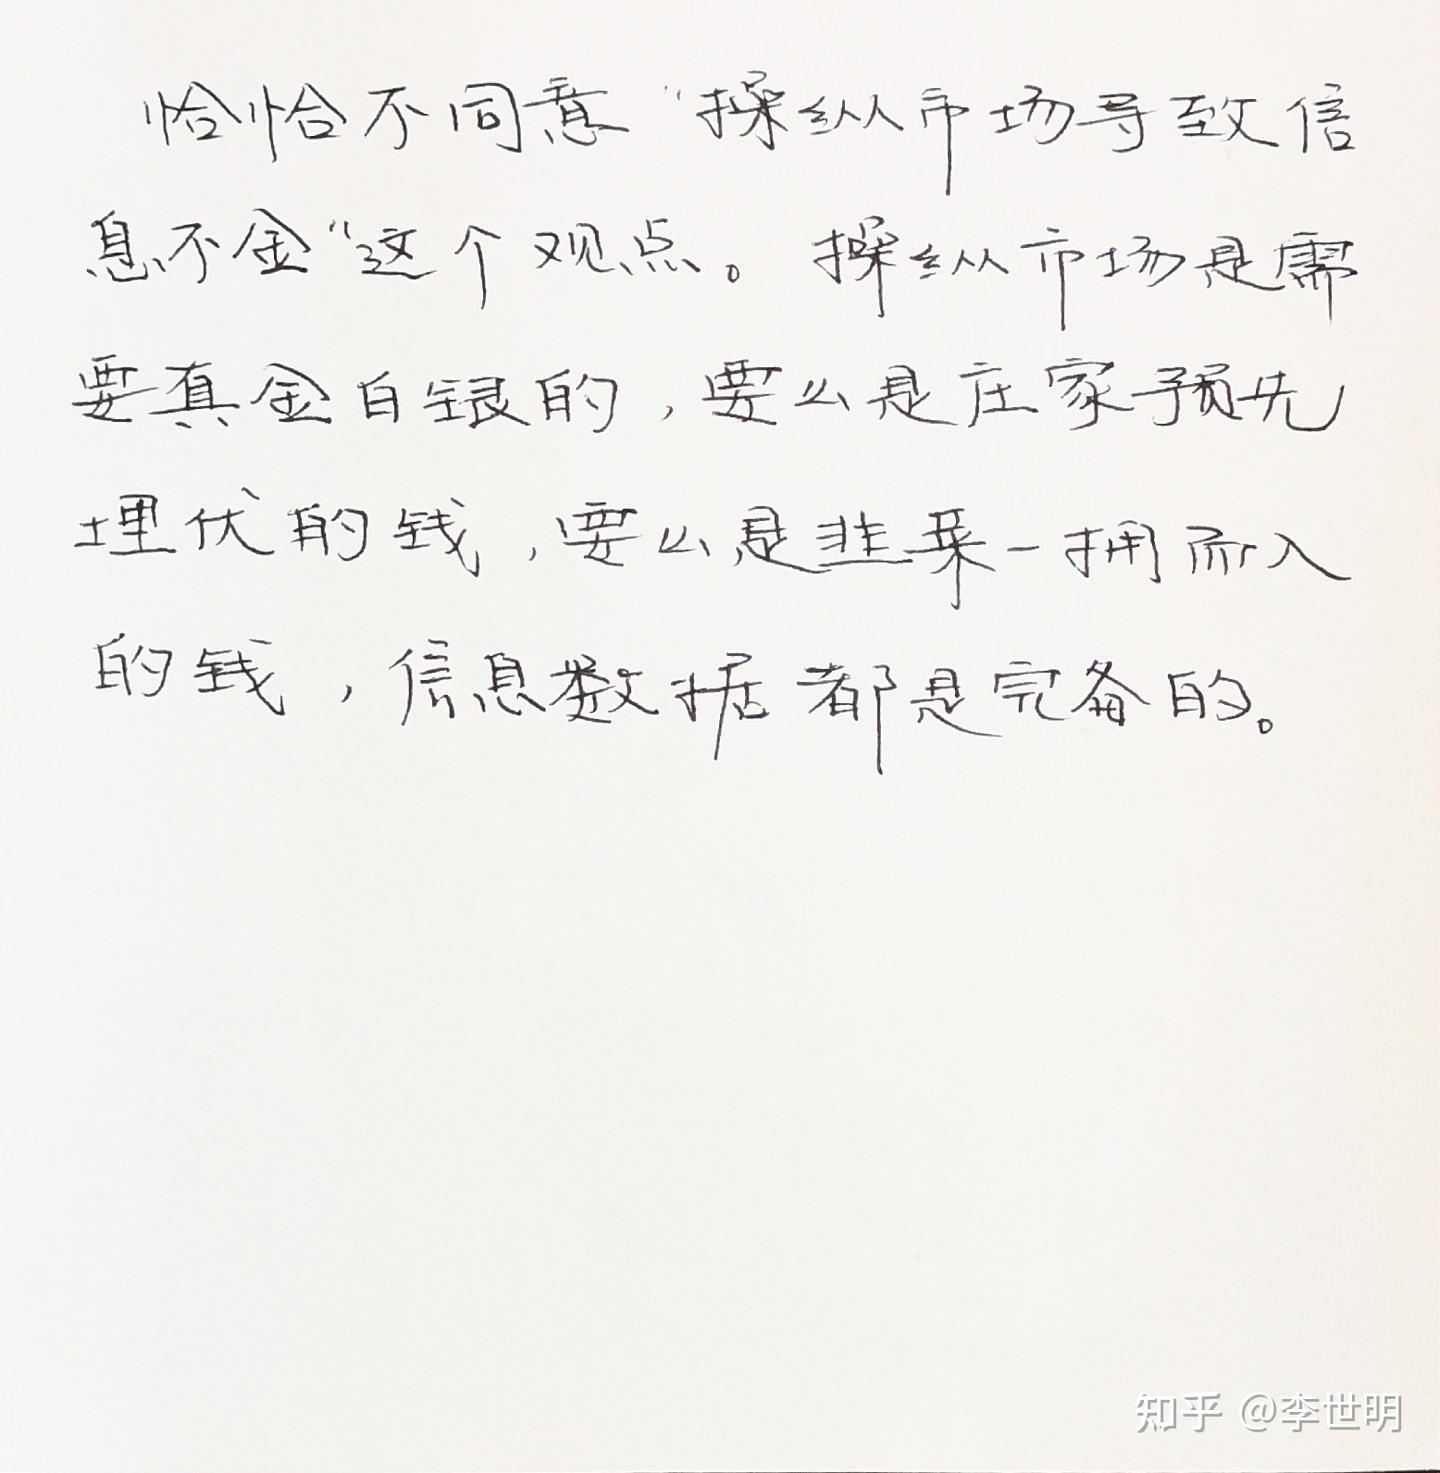 恰恰不同意“操纵市场导致信
息不全”这个观点。操纵市场是需
要真金白银的，要么是庄家预先
埋伏的钱，要么是韭菜一拥而入
的钱，信息数据都是完备的。
知乎 @李世明